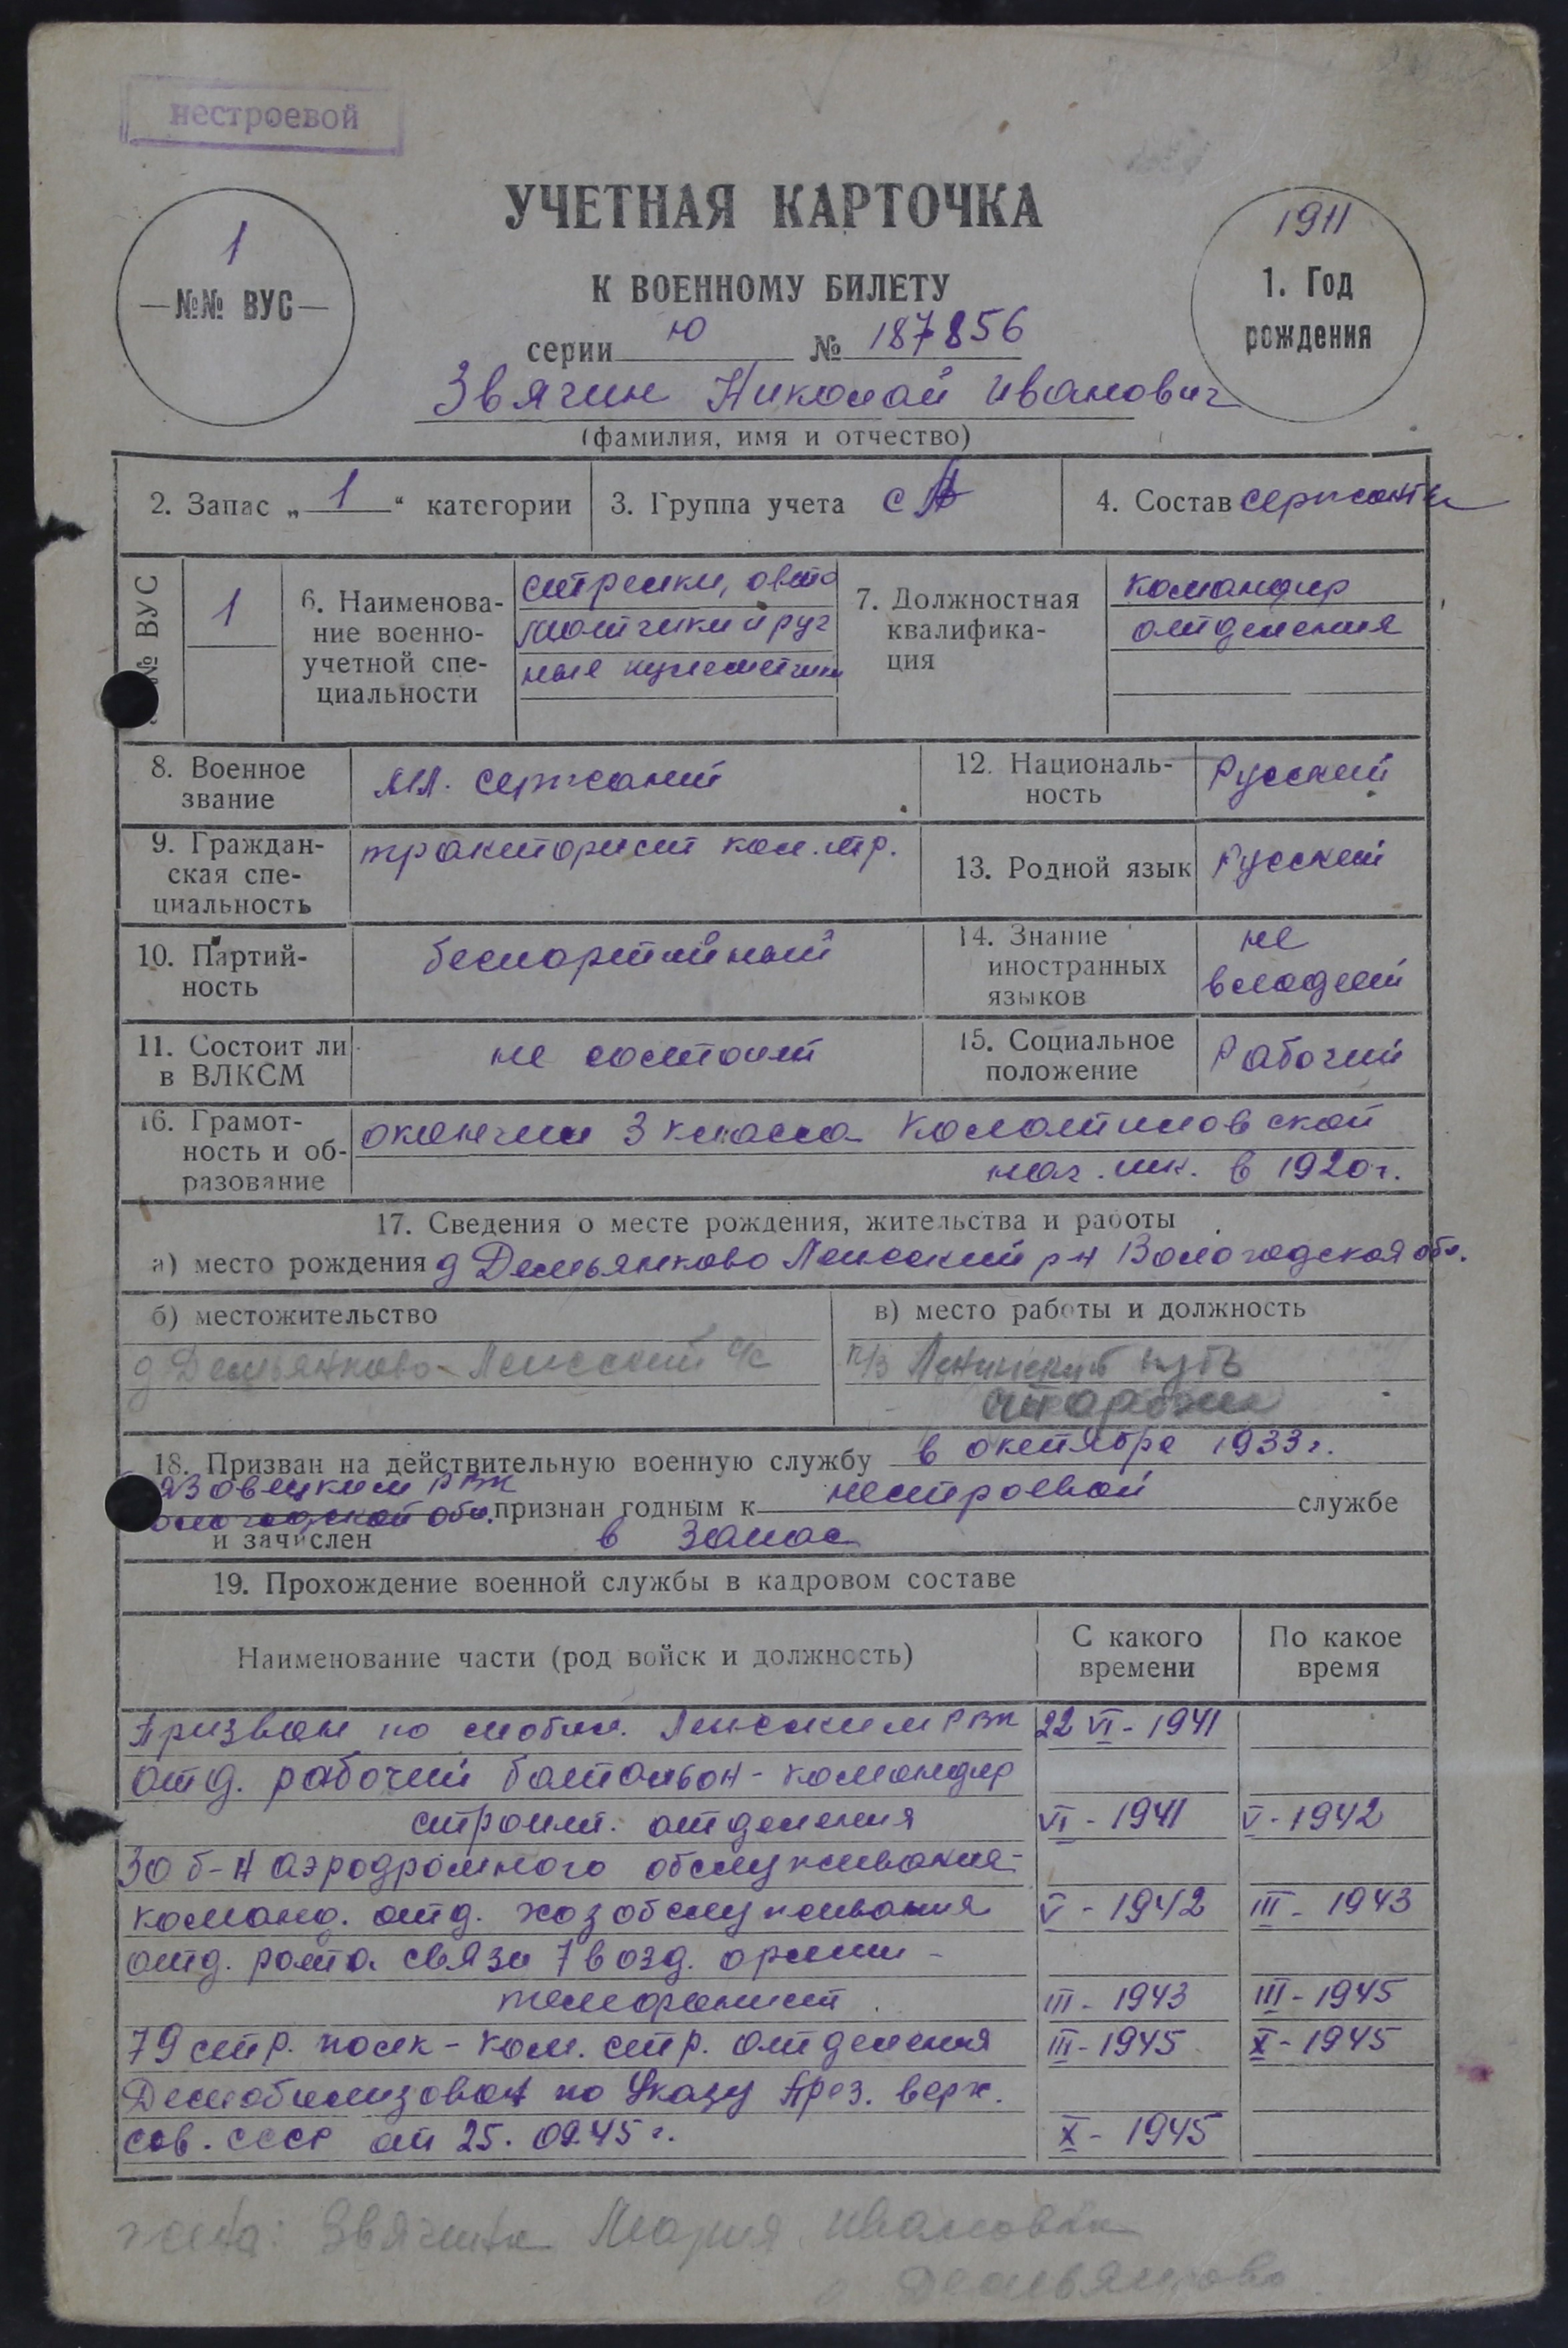 нестроевой
УЧЕТНАЯ КАРТОЧКА
К ВОЕННОМУ БИЛЕТУ
1
—№№ ВУС—
1911
1. Год
рождения
серии Ю № 187856
Звягин Николай Иванович
(фамилия, имя и отчество)
2. Запас „ 1 “ категории
3. Группа учета СА
4. Состав сержанты
№ ВУС
1
6. Наименова-
ние военно-
учетной спе-
циальности
стрелки, авто
матчики и руч
ные пулеметчики
7. Должностная
квалифика-
ция
командир
отделения
8. Военное
звание
мл. сержант
12. Националь-
ность
Русский
9. Граждан-
ская спе-
циальность
тракторист кол.тр.
13. Родной язык
Русский
10. Партий-
ность
беспартийный
14. Знание
иностранных
языков
не
владеет
11. Состоит ли
в ВЛКСМ
не состоит
15. Социальное
положение
Рабочий
16. Грамот-
ность и об-
разование
окончил 3 класса
нач. шк. в 1920 г.
17. Сведения о месте рождения, жительства и работы
а) место рождения д Демьянково Лежский р-н Вологодская обл.
б) местожительство
д Демьянково Лежский с/с
в) место работы и должность
Ленинский путь
18. Призван на действительную военную службу в октябре 1933 г.
язовецким РВК
ологодской обл. признан годным к нестроевой службе
и зачислен в запас
19. Прохождение военной службы в кадровом составе
Наименование части (род войск и должность)
С какого
времени
По какое
время
Призван по мобил. Лежским РВК 22 VI - 1941
отд. рабочий батальон - командир
строит. отделения VI - 1941 V - 1942
30 б-н аэродромного обслуживания -
команд. отд. хозобслуживания V - 1942 III - 1943
отд. рота связи 7 возд. армии -
телефонист III - 1943 III - 1945
79 стр. полк - ком. стр. отделения III - 1945 X - 1945
Демобилизован по Указу През. верх.
сов. СССР от 25.09.45 г. X - 1945
жена: Звягина Мария Ивановна
Демьянково